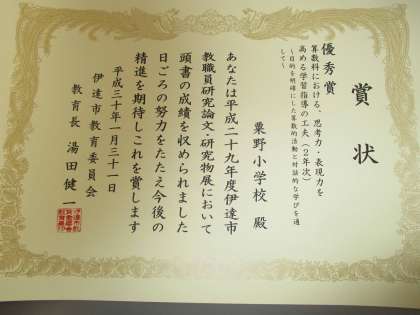 賞状
優秀賞
算数科における、思考力・表現力を
高める学習指導の工夫(2年次)
~目的を明確にした算数的活動と対話的な学びを通
して~
粟野小学校 殿
あなたは平成二十九年度伊達市
教職員研究論文・研究物展において
頭書の成績を収められました
日ごろの努力をたたえ今後の
精進を期待しこれを賞します
平成三十年一月三十一日
伊達市教育委員会
教育長 湯田健一